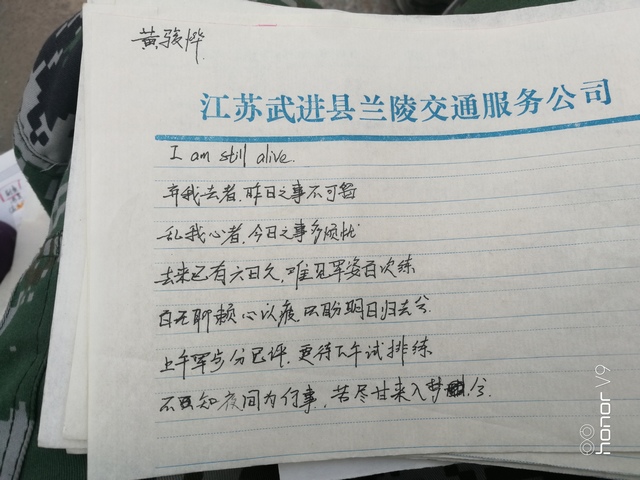 黄骏烨
江苏武进县兰陵交通服务公司
I am still alive.
弃我去者,昨日之事不可留
乱我心者,今日之事多烦忧
去来已有六日久,唯见军姿百次练
百无聊赖心以疲,只盼明日归去兮.
上午军步分已评,更待下午试排练
不知夜间为何事,苦尽甘来入梦兮.
honor V9